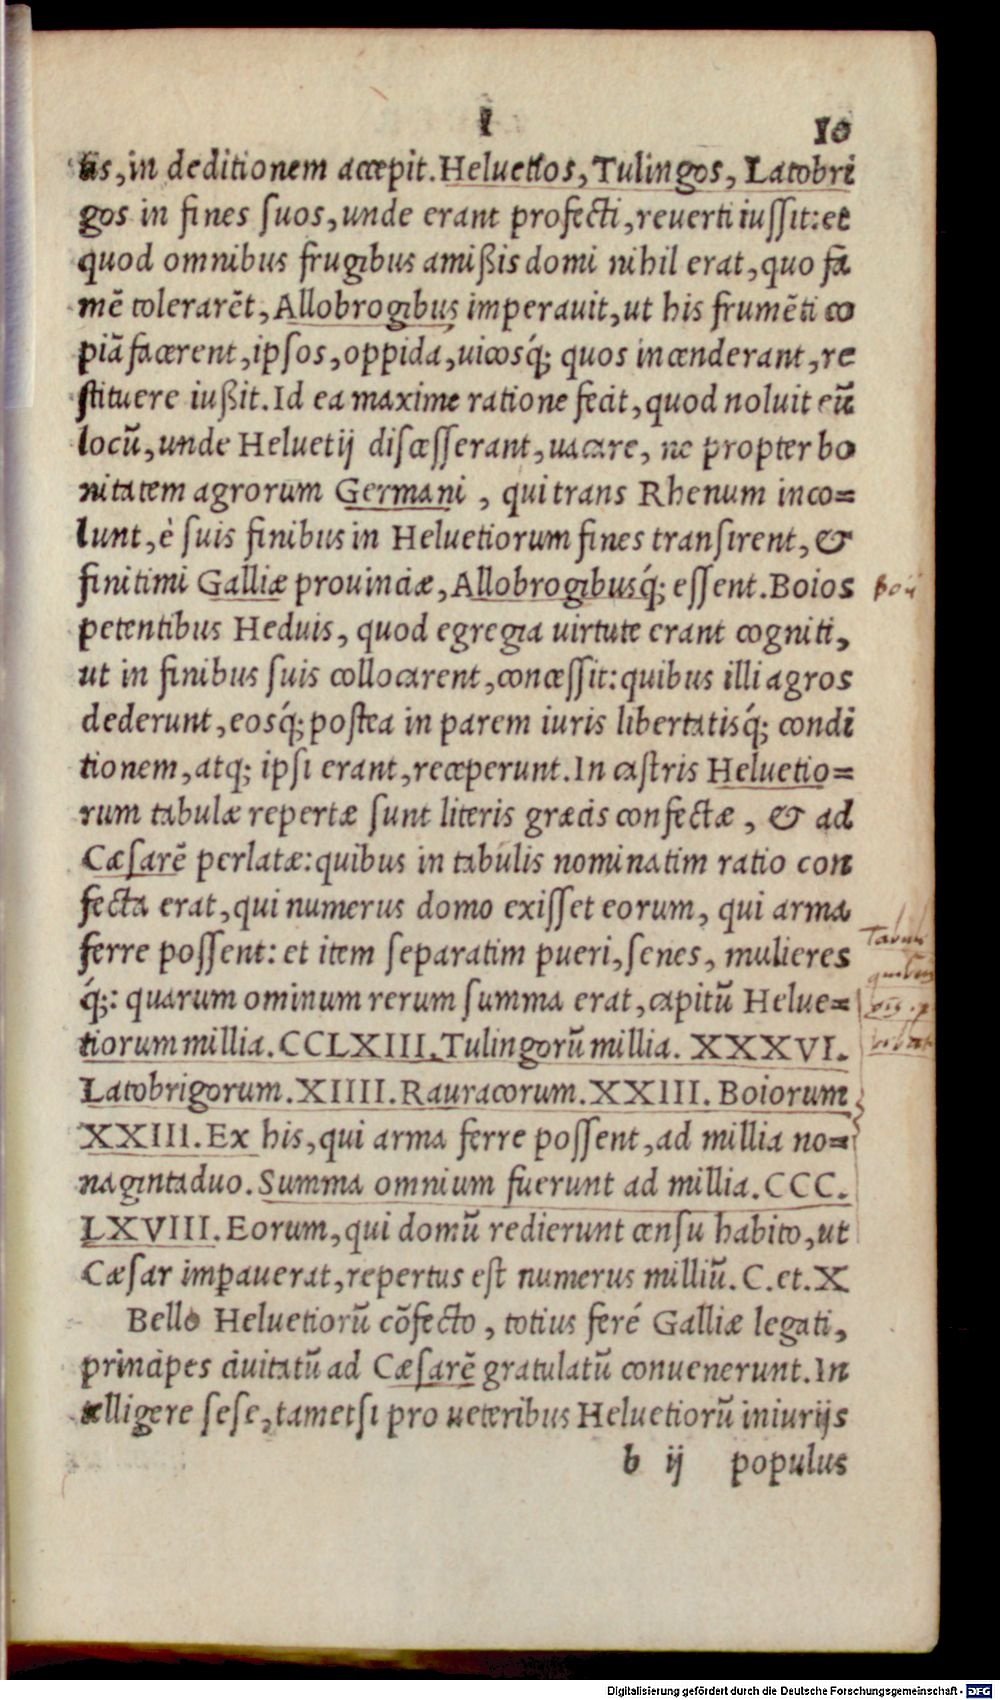 I 10
tis, in deditionem accepit. Heluetios, Tulingos, Latobri
gos in fines suos, unde erant profecti, reuerti iussit: et
quod omnibus frugibus amißis domi nihil erat, quo fa
mē tolerarēt, Allobrogibus imperauit, ut his frumēti co
piā facerent, ipsos, oppida, uicosq́; quos incenderant, re
stituere iußit. Id ea maxime ratione fecit, quod noluit eū
locū, unde Heluetij discesserant, uacare, ne propter bo
nitatem agrorum Germani, qui trans Rhenum inco=
lunt, è suis finibus in Heluetiorum fines transirent, &
finitimi Galliæ prouinciæ, Allobrogibusq́; essent. Boios
Boii
petentibus Heduis, quod egregia uirtute erant cogniti,
ut in finibus suis collocarent, concessit: quibus illi agros
dederunt, eosq́; postea in parem iuris libertatisq́; condi
tionem, atq; ipsi erant, receperunt. In castris Heluetio=
rum tabulæ repertæ sunt literis græcis confectæ, & ad
Cæsarē perlatæ: quibus in tabulis nominatim ratio con
fecta erat, qui numerus domo exisset eorum, qui arma
ferre possent: et item separatim pueri, senes, mulieres
q́;: quarum ominum rerum summa erat, capitū Helue=
tiorum millia. CCLXIII. Tulingorū millia. XXXVI.
Latobrigorum. XIIII. Rauracorum. XXIII. Boiorum
XXXIII. Ex his, qui arma ferre possent, ad millia no=
naginta duo. Summa omnium fuerunt ad millia. CCC.
LXVIII. Eorum, qui domū redierunt censu habito, ut
Cæsar imꝑauerat, repertus est numerus milliū. C. et. X
Bello Heluetiorū cōfecto, totius feré Galliæ legati,
principes ciuitatū ad Cæsarē gratulatū conuenerunt. In
telligere sese, tametsi pro ueteribus Heluetiorū iniurijs
b ij populus
Digitalisierung gefördert durch die Deutsche Forschungsgemeinschaft - DFG